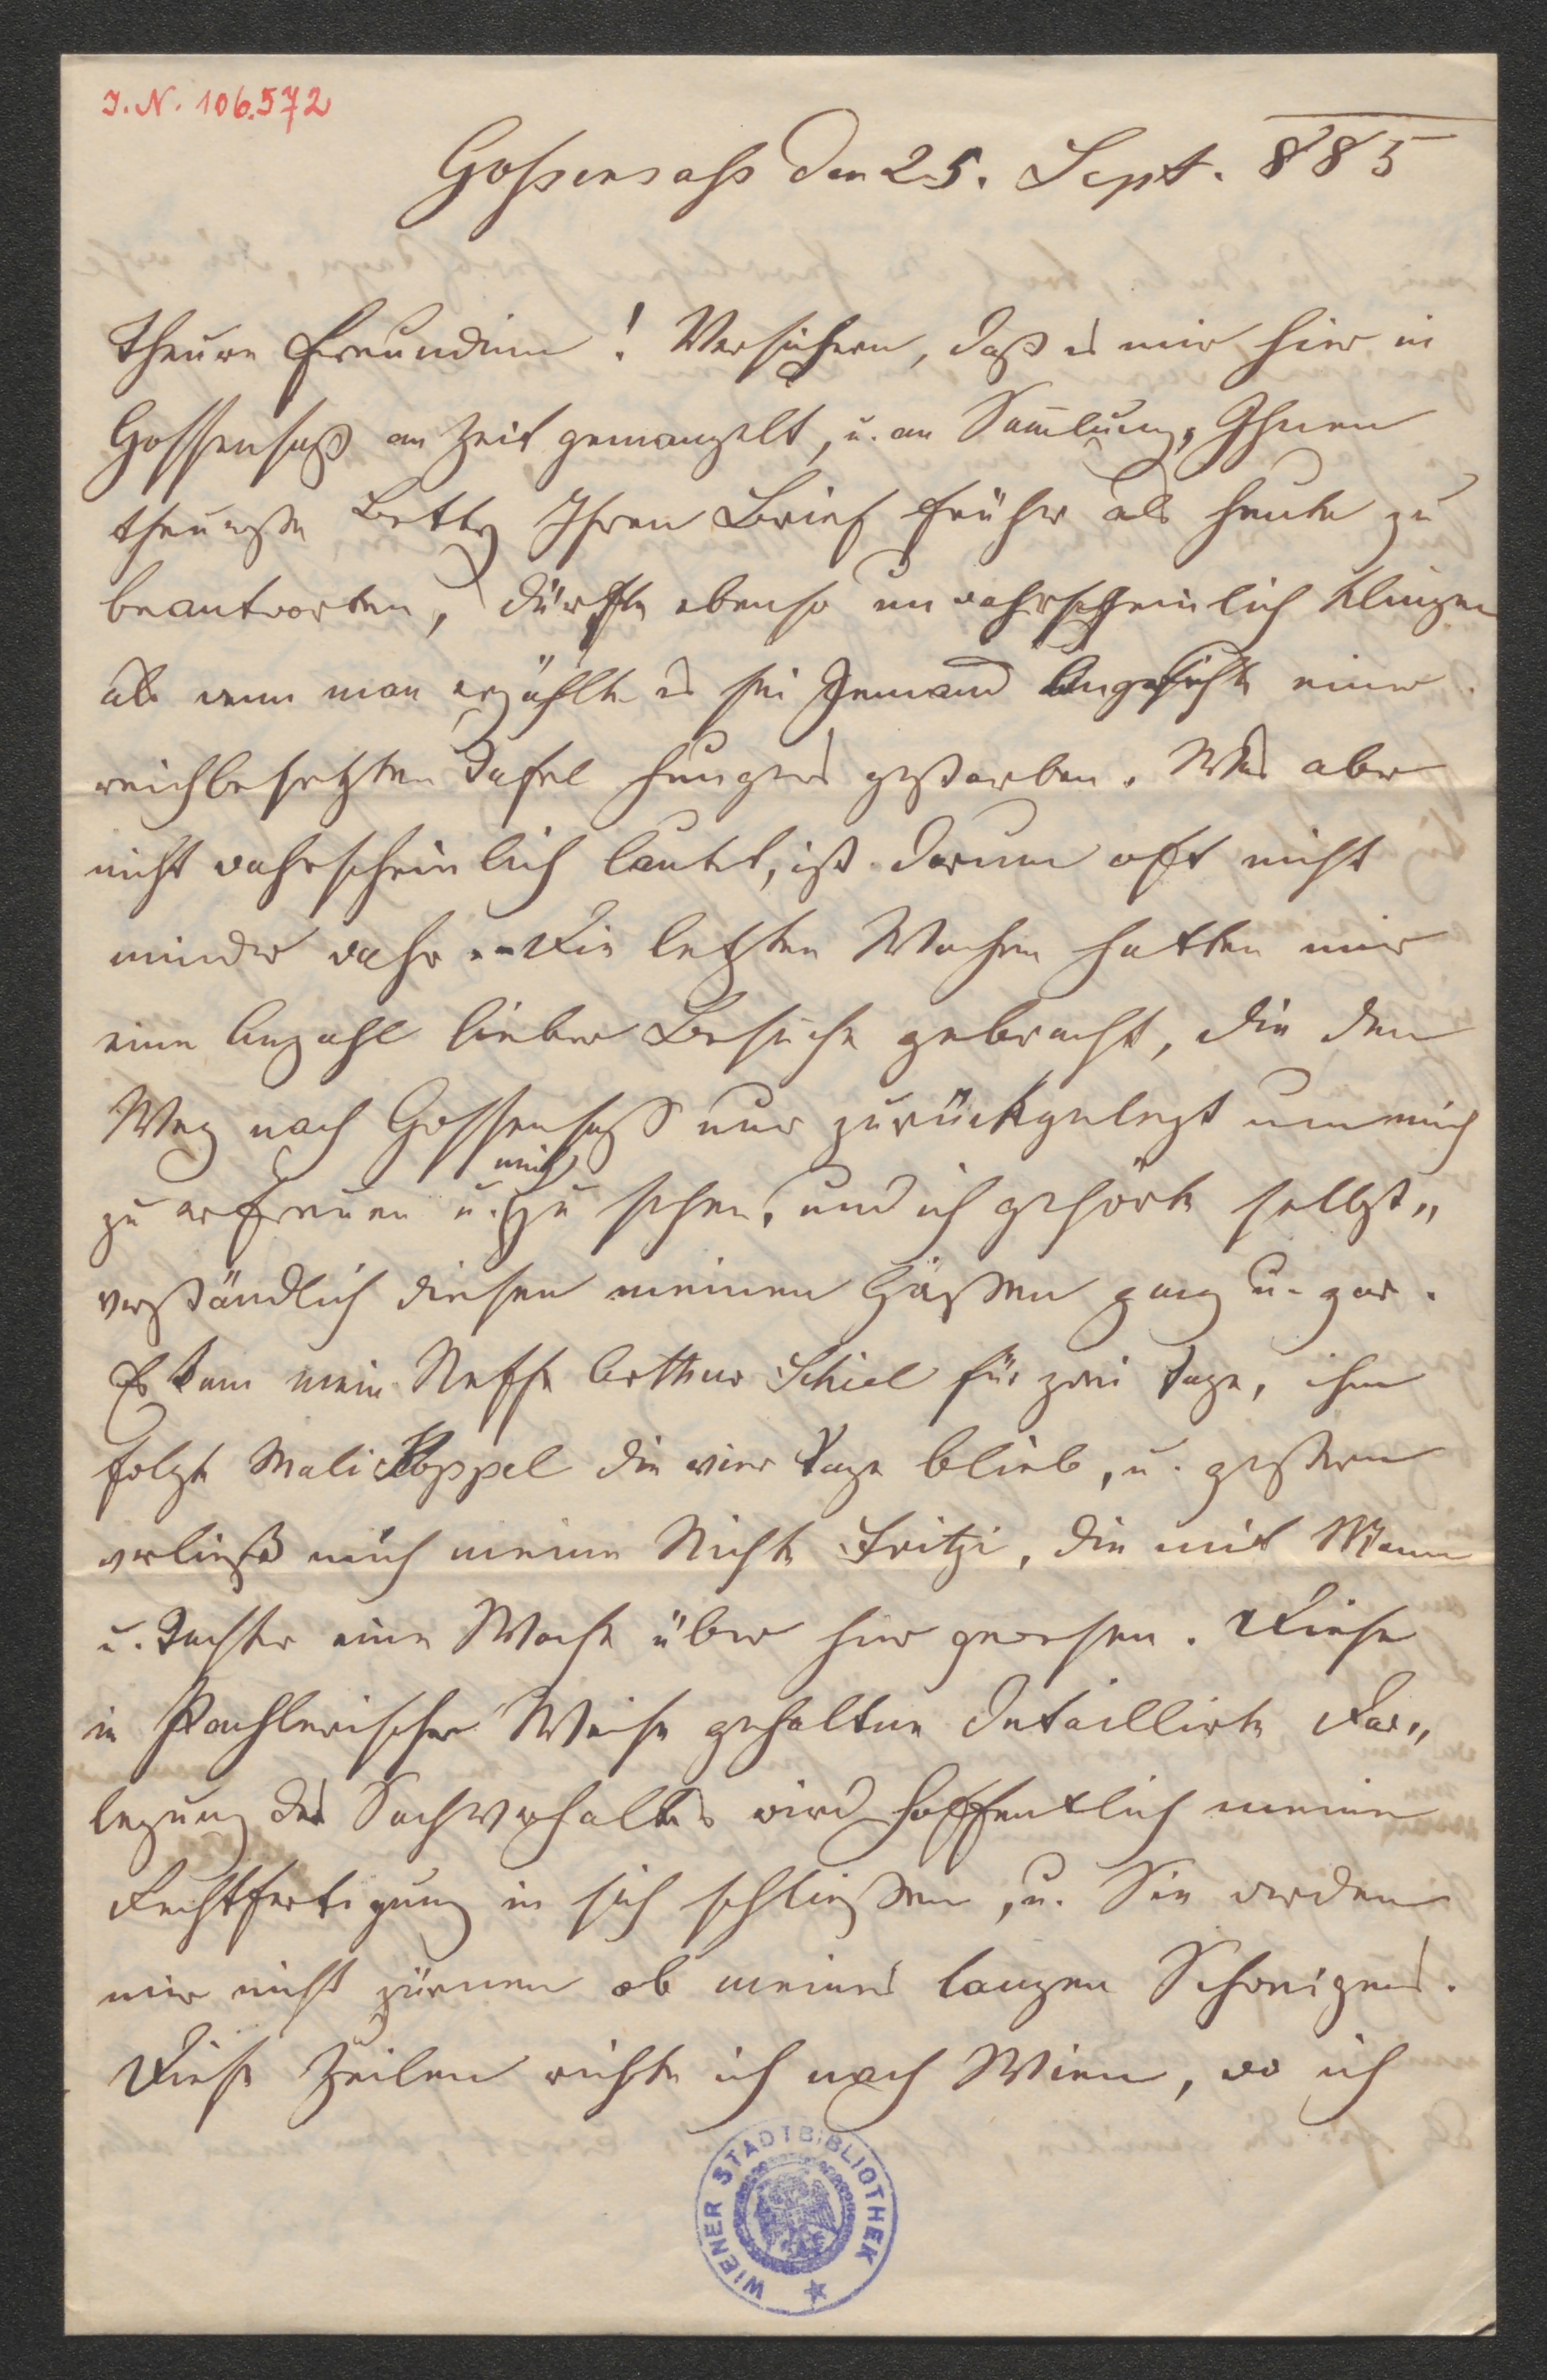 I. N. 106.572
Gossensass den 25. Sept. 885
Theure Freundinn! Versichern, daß es mir hier in
Gossensaß an Zeit gemangelt, u. an Samlung, Ihnen
theuerste Betty Ihren Brief früher als heute zu
beantworten, dürfte ebenso unwahrscheinlich klingen
als wenn man erzählte es sei Jemand Angesichts einer
reichbesetzten Tafel Hungers gestorben. Was aber
nicht wahrscheinlich lautet, ist darum oft nicht
minder wahr. – Die letzten Wochen hatten mir
eine Anzahl lieber Besuche gebracht, die den
Weg nach Gossensaß nur zurückgelegt um mich
zu erfreuen u. mich zu sehen, und ich gehörte selbst„
verständlich diesen meinen Gästen ganz u. gar.
Es kam mein Neffe Arthur Schiel für zwei Tage, ihm
folgte Mali Koppel die vier Tage blieb, u. gestern
verließ mich meine Nichte Fritzi, die mit Mann
u. Tochter eine Woche über hier gewesen. Diese
in Pachlerischer Weise gehaltene detaillirte Dar„
legung des Sachverhaltes wird hoffentlich meine
Rechtfertigung in sich schließen, u. Sie werden
mir nicht zürnen ob meines langen Schweigens.
Diese Zeilen richte ich nach Wien, wo ich
WIENER STADTBIBLIOTHEK